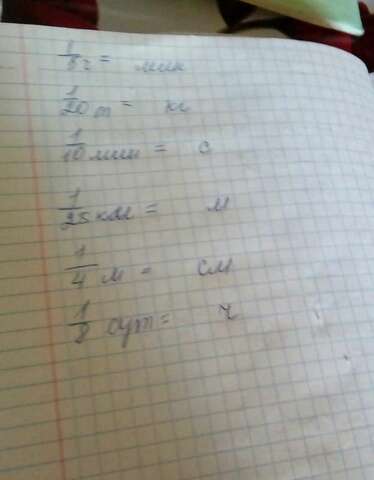 1/5 ч = мин
1/20 т = кг
1/10 мин = с
1/25 км = м
1/4 м = см
1/8 сут = ч